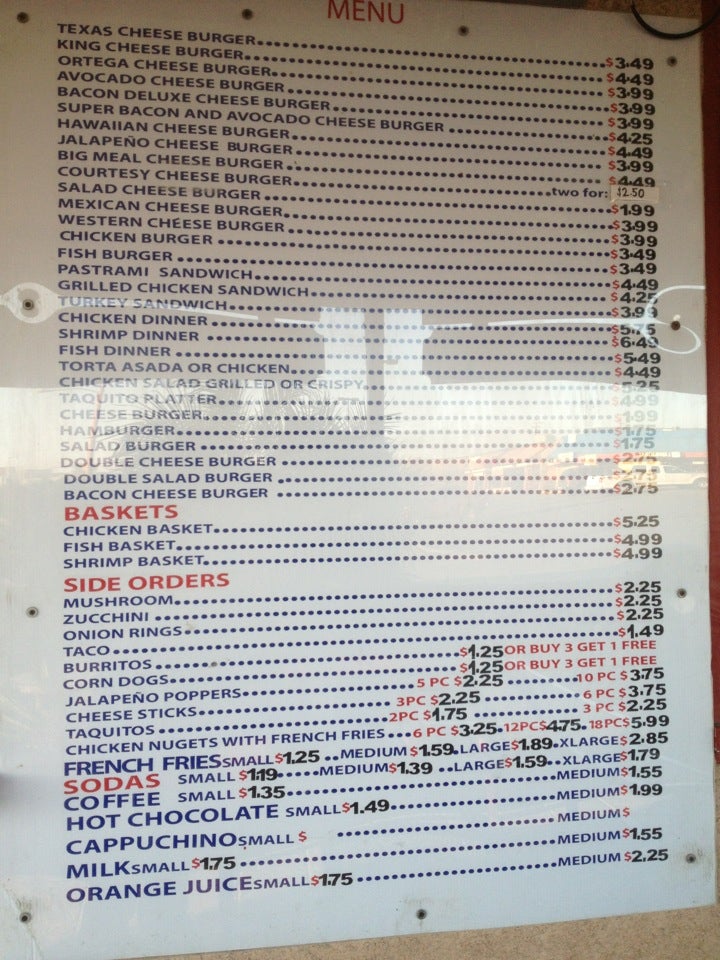 MENU
TEXAS CHEESE BURGER $3.49
KING CHEESE BURGER $4.49
ORTEGA CHEESE BURGER $3.99
AVOCADO CHEESE BURGER $3.99
BACON DELUXE CHEESE BURGER $3.99
SUPER BACON AND AVOCADO CHEESE BURGER $4.25
HAWAIIAN CHEESE BURGER $4.49
JALAPEÑO CHEESE BURGER $3.99
BIG MEAL CHEESE BURGER $4.49
COURTESY CHEESE BURGER two for: $2.50
SALAD CHEESE BURGER $1.99
MEXICAN CHEESE BURGER $3.99
WESTERN CHEESE BURGER $3.99
CHICKEN BURGER $3.49
FISH BURGER $3.49
PASTRAMI SANDWICH $4.49
GRILLED CHICKEN SANDWICH $4.25
TURKEY SANDWICH $3.99
CHICKEN DINNER $5.75
SHRIMP DINNER $6.49
FISH DINNER $5.49
TORTA ASADA OR CHICKEN $4.49
CHICKEN SALAD GRILLED OR CRISPY $5.25
TAQUITO PLATTER $4.99
CHEESE BURGER $1.99
HAMBURGER $1.75
SALAD BURGER $1.75
DOUBLE CHEESE BURGER $2.75
DOUBLE SALAD BURGER $2.75
BACON CHEESE BURGER $2.75
BASKETS
CHICKEN BASKET $5.25
FISH BASKET $4.99
SHRIMP BASKET $4.99
SIDE ORDERS
MUSHROOM $2.25
ZUCCHINI $2.25
ONION RINGS $2.25
TACO $1.49
BURRITOS $1.25 OR BUY 3 GET 1 FREE
CORN DOGS $1.25 OR BUY 3 GET 1 FREE
JALAPEÑO POPPERS 5 PC $2.25 10 PC $3.75
CHEESE STICKS 3PC $2.25 6 PC $3.75
TAQUITOS 2PC $1.75 3 PC $2.25
CHICKEN NUGETS WITH FRENCH FRIES 6 PC $3.25 12PC$4.75 18PC$5.99
FRENCH FRIES SMALL $1.25 MEDIUM $1.59 LARGE $1.89 XLARGE $2.85
SODAS SMALL $1.19 MEDIUM $1.39 LARGE $1.59 XLARGE $1.79
COFFEE SMALL $1.35 MEDIUM $1.55
HOT CHOCOLATE SMALL $1.49 MEDIUM $1.99
CAPPUCHINO SMALL $ MEDIUM $
MILK SMALL $1.75 MEDIUM $1.55
ORANGE JUICE SMALL $1.75 MEDIUM $2.25